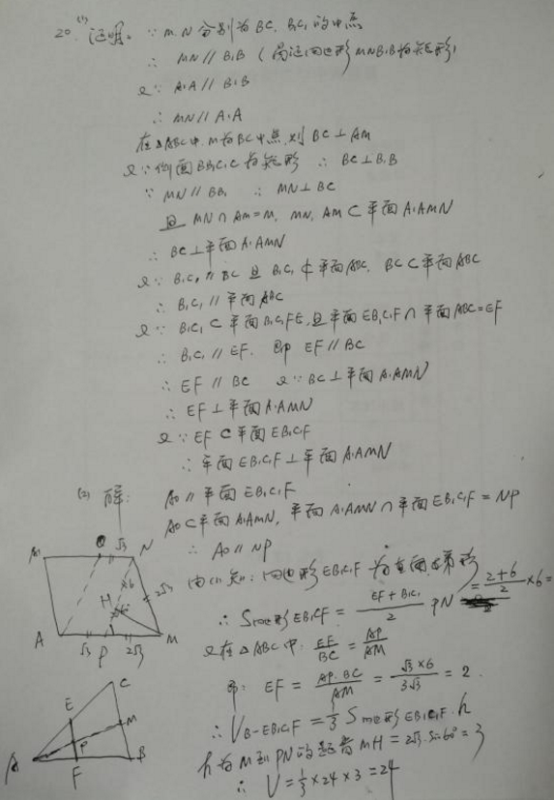 20. (1) 证明: ∵ M.N分别为BC, B₁C₁的中点
∴ MN∥B₁B
又∵ A₁A∥B₁B
∴ MN∥A₁A
在△ABC中, M为BC中点, 则 BC⊥AM
又∵侧面BB₁C₁C为矩形 ∴ BC⊥B₁B
∵ MN∥BB₁ ∴ MN⊥BC
且 MN∩AM=M, MN, AM⊂平面A₁AMN
∴ BC⊥平面A₁AMN
又∵ B₁C₁∥BC 且 B₁C₁⊄平面ABC, BC⊂平面ABC
∴ B₁C₁∥平面ABC
又∵ B₁C₁⊂平面B₁C₁FE, 且平面EB₁C₁F∩平面ABC=EF
∴ B₁C₁∥EF. 即 EF∥BC
∴ EF∥BC 又∵BC⊥平面A₁AMN
∴ EF⊥平面A₁AMN
又∵ EF⊂平面EB₁C₁F
∴ 平面EB₁C₁F⊥平面A₁AMN
(2) 解: AO∥平面EB₁C₁F
AO⊂平面A₁AMN, 平面A₁AMN∩平面EB₁C₁F=NP
∴ AO∥NP
由(1)知: 四边形EB₁C₁F为 梯形
∴ S四边形EB₁C₁F = (EF+B₁C₁)/2 PN = (2+6)/2 ×6=
又在△ABC中, EF/BC = AP/AM
EF = AP·BC/AM = √3×6/3√3 = 2
∴ V_B-EB₁C₁F = 1/3 S四边形EB₁C₁F·h
h为M到PN的距离MH=2√3·sin60°=3
∴ V=1/3×24×3=24
A₁ O √3 N
H ×6 60° 2√3
A √3 P 2√3 M
C
E
M
P
A F B